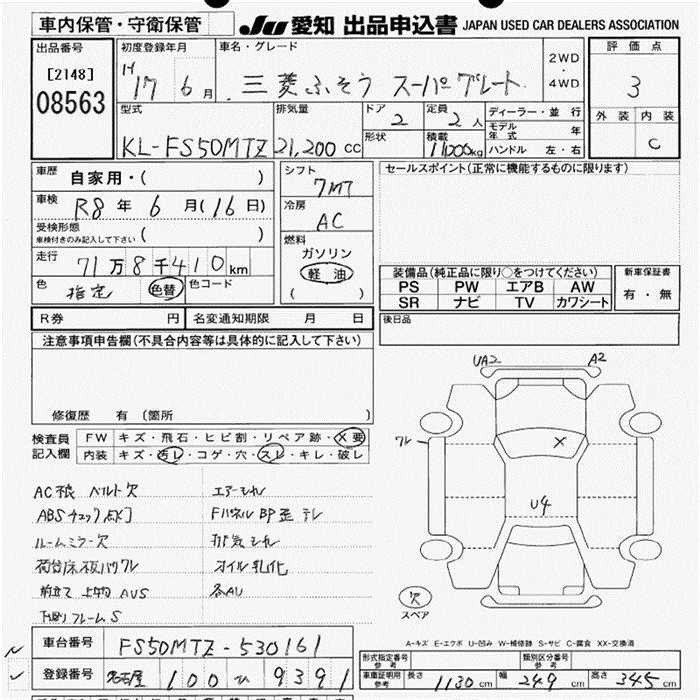 車内保管・守衛保管
JU 愛知 出品申込書 JAPAN USED CAR DEALERS ASSOCIATION
出品番号
[2148]
08563
初度登録年月
H 17 6 月
車名・グレード
三菱ふそう スーパーグレート
2WD
・
4WD
評価点
3
外装 内装
C
型式
KL-FS50MTZ
排気量
21,200 CC
ドア
2
形状
定員
2 人
積載
11000kg
ディーラー・並行
モデル年式 年
ハンドル 左・右
車歴
自家用・( )
車検
R8 年 6 月(16日)
受検形態
車検付きのみ記入して下さい ( )
走行
71万8千410km
色 指定 色替 色コード
シフト
7MT
冷房
AC
燃料
ガソリン
軽油
( )
セールスポイント(正常に機能するものに限ります)
装備品(純正品に限り○をつけてください)
PS PW エアB AW
SR ナビ TV カワシート
新車保証書
有・無
R券 円 名変通知期限 月 日
後日品
注意事項申告欄(不具合内容等は具体的に記入して下さい)
修復歴 有(箇所 )
検査員
記入欄
FW キズ・飛石・ヒビ割・リペア跡・X要
内装 キズ・汚レ・コゲ・穴・スレ・キレ・破レ
AC不良 ベルト欠
ABSチェック点灯
ルームミラー欠
荷台床板パワレ
AUS
下廻りフレームS
エアーモレ
Fパネル BP歪 テレ
排気モレ
オイル乳化
各AU
UA2 A2
ワレ
X
U4
欠
スペア
A-キズ E-エクボ U-凹み W-補修跡 S-サビ C-腐食 XX-交換済
車台番号 FS50MTZ-530161
登録番号 名古屋 100 ひ 9391
型式指定番号
参考
類別区分番号
参考
車庫証明用
参考
長さ 1130 cm 幅 249 cm 高さ 345 cm